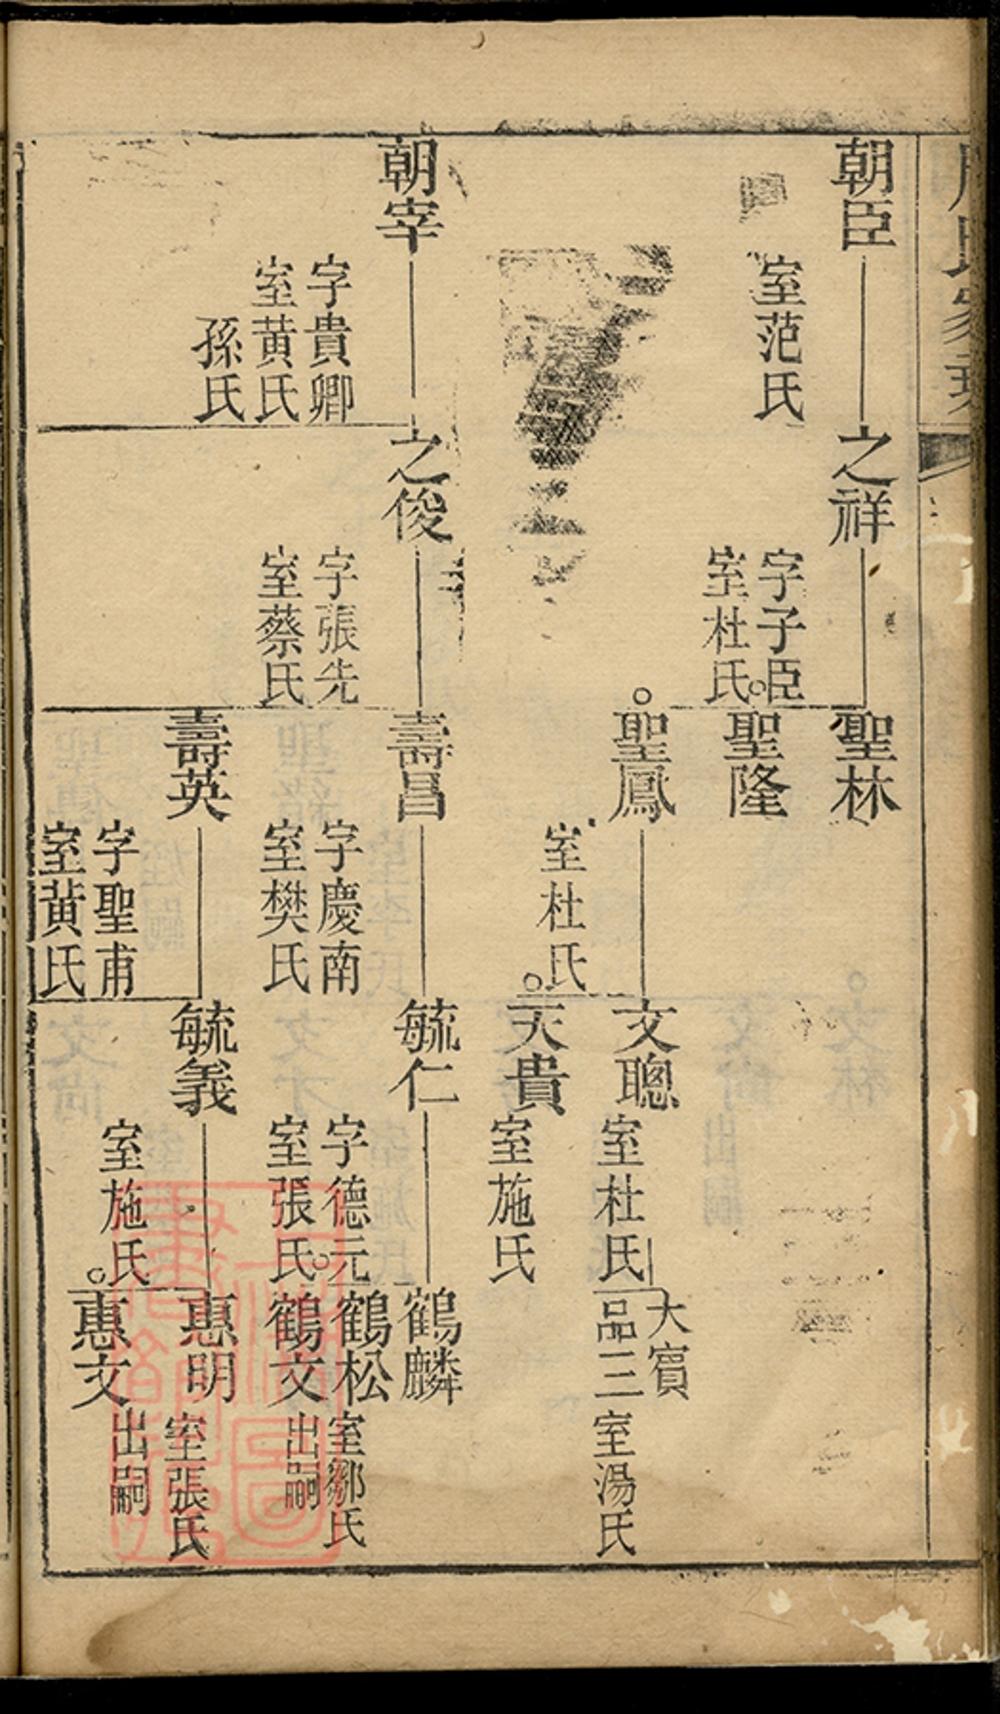 朝臣
室范氏
之祥
字子臣
室杜氏
聖林
聖隆
聖鳳
室杜氏
文聰
室杜氏
大賓
品三
室湯氏
天貴
室施氏
朝宰
字貴卿
室黄氏
孫氏
之俊
字張先
室蔡氏
壽昌
字慶南
室樊氏
毓仁
字德元
室張氏
鶴麟
鶴松
室鄒氏
鶴文
出嗣
壽英
字聖甫
室黄氏
毓義
室施氏
惠明
室張氏
惠文
出嗣